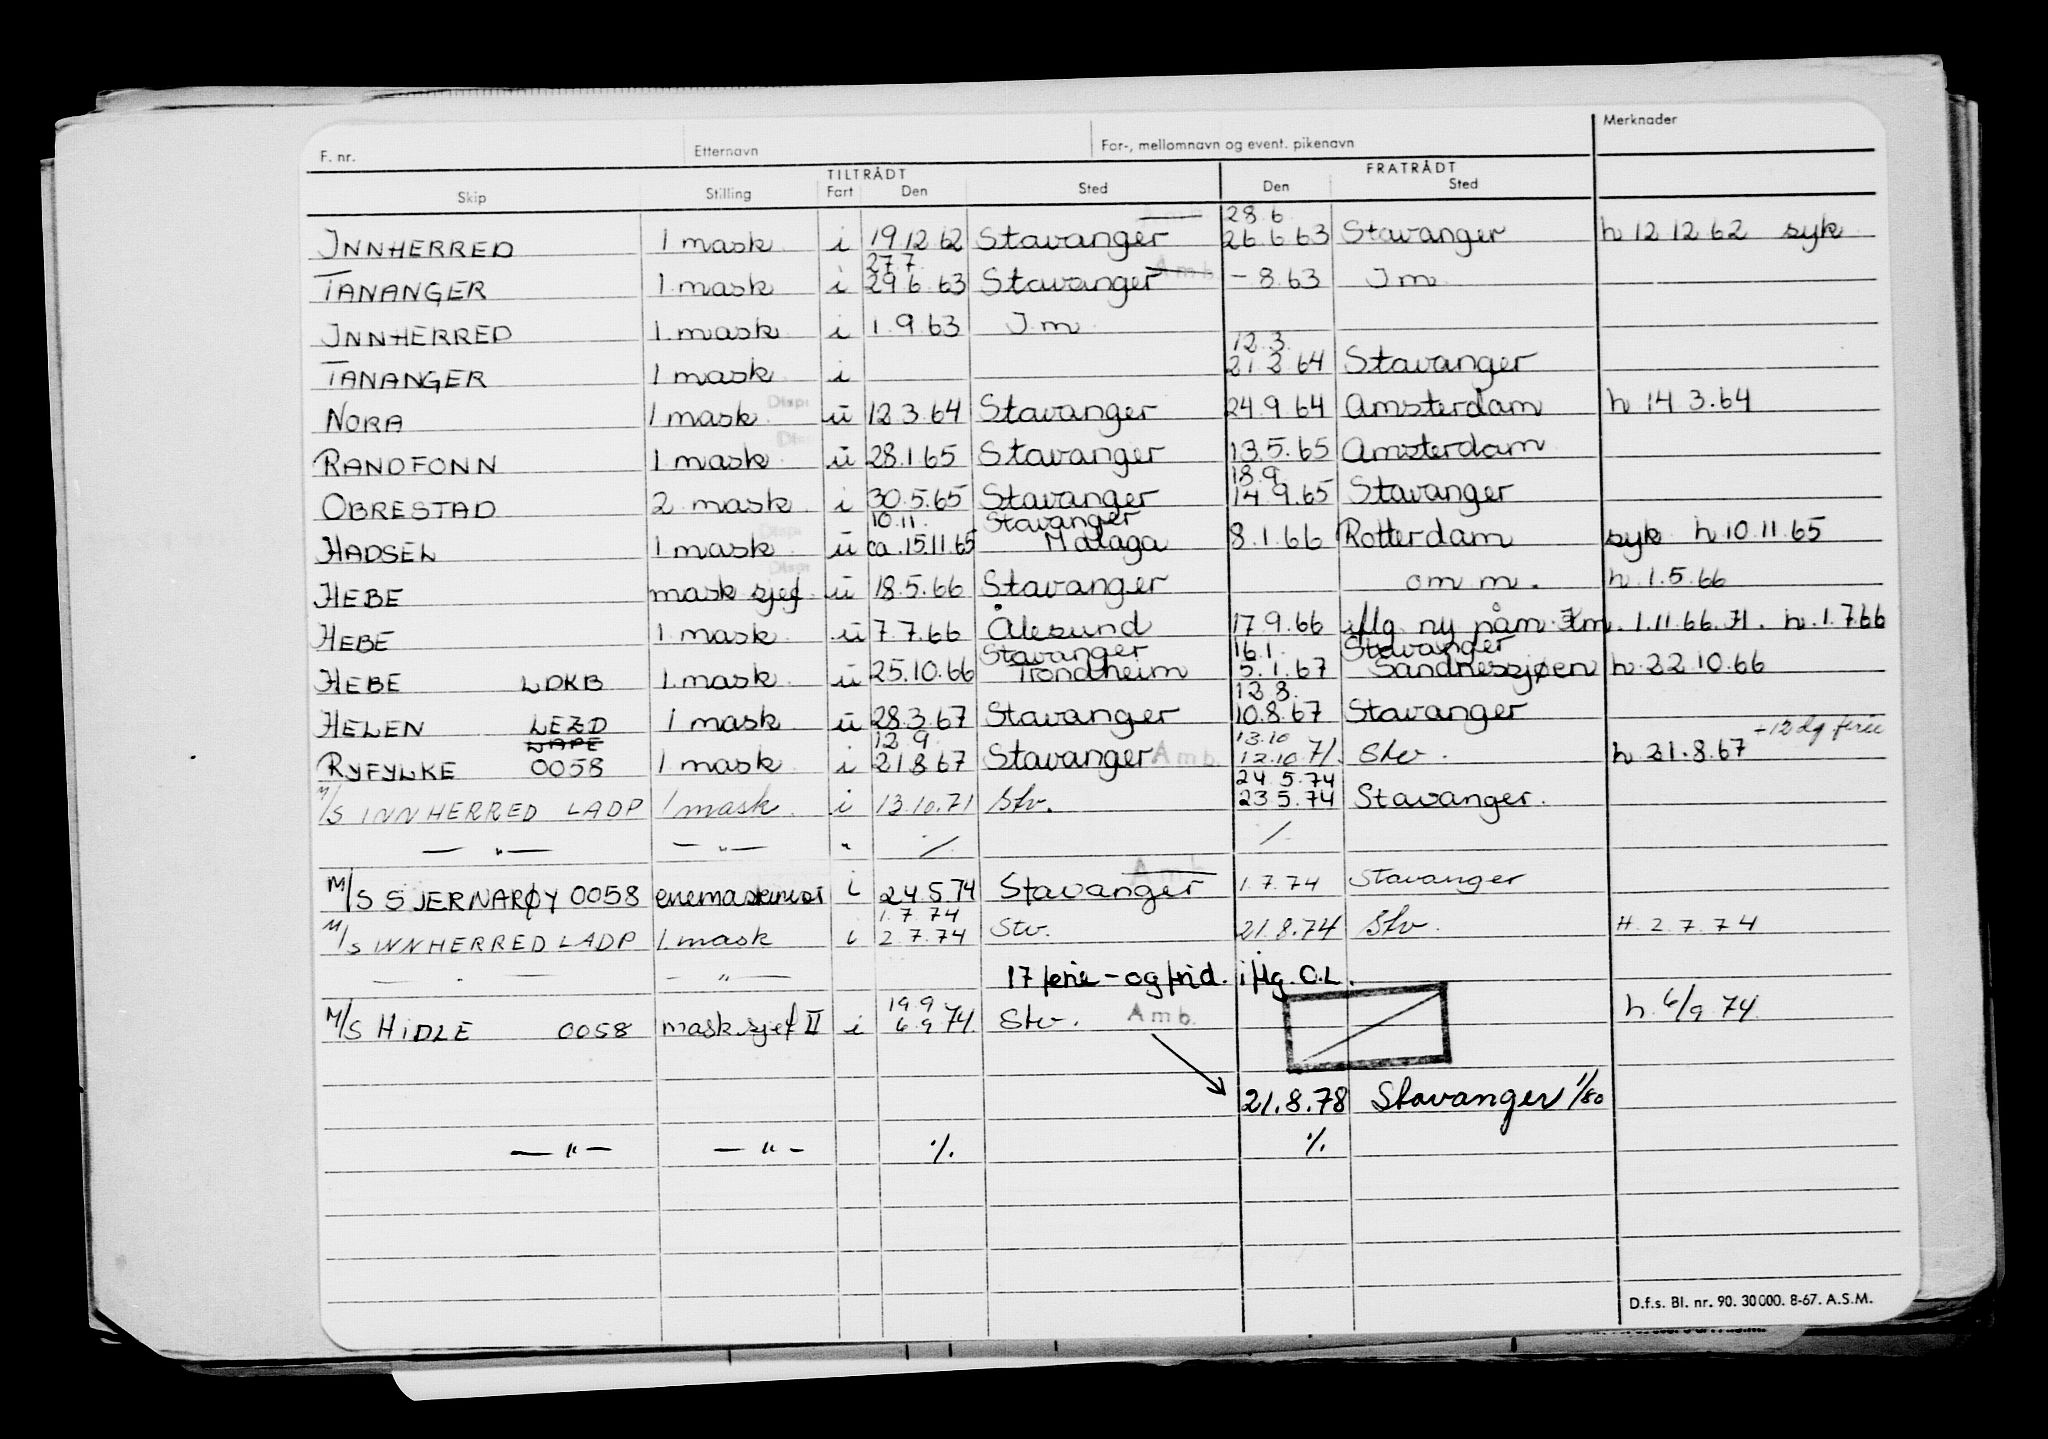 F. nr. Etternavn For-, mellomnavn og event. pikenavn Merknader
TILTRÅDT FRATRÅDT
Skip Stilling Fart Den Sted Den Sted
28.6
INNHERRED 1 mask i 19.12.62 Stavanger 26.6.63 Stavanger h 12 12 62 syk
27.7. Amb
TANANGER 1 mask i 29.6.63 Stavanger - 8.63 I m
INNHERRED 1. mask i 1.9.63 I m
12.3.
TANANGER 1 mask i 21.2.64 Stavanger
Disp:
NORA 1 mask u 12.3.64 Stavanger 24.9.64 Amsterdam h 14 3.64
Disp
RANDFONN 1 mask u 28.1.65 Stavanger 13.5.65 Amsterdam
18.9
OBRESTAD 2. mask i 30.5.65 Stavanger 14.9.65 Stavanger
Disp: 10.11. Stavanger
HADSEL 1 mask u ca.15.11.65 Malaga 8.1.66 Rotterdam syk h 10.11.65
Disp
HEBE mask sjef u 18.5.66 Stavanger om m. h.1.5.66
HEBE 1 mask u 7.7.66 Ålesund 17.9.66 iflg ny påm. 1.11.66. h.1.7.66
Stavanger 16.1. Stavanger
HEBE LDKB 1 mask u 25.10.66 Trondheim 5.1.67 Sandnessjøen h 22.10.66
12.8.
HELEN LEZD 1 mask u 28.3.67 Stavanger 10.8.67 Stavanger
12.9. 13.10 +12 dg ferie
RYFYLKE 0058 1 mask i 21.8.67 Stavanger Amb. 12.10.71. Stv. h 21.8.67
24 5.74
M/S INNHERRED LADP 1 mask. i 13.10.71 Stv. 23 5.74 Stavanger.
— " — — " — " ./. ./.
Amb
M/S SJERNARØY 0058 enemaskinist i 24.5.74 Stavanger 1.7.74 Stavanger
1.7.74
M/S INNHERRED LADP 1 mask i 2.7.74 Stv. 21.8.74 Stv. H. 2.7.74
— " — 17 ferie- og frid. iflg. O.L.
19.9
M/S HIDLE 0058 mask.sjef II i 6.9.74. Stv. Amb. h. 6/9 74
21.8.78 Stavanger 1/80
— " — — " — ./. ./.
D.f.s. Bl. nr. 90. 30000. 8-67. A.S.M.